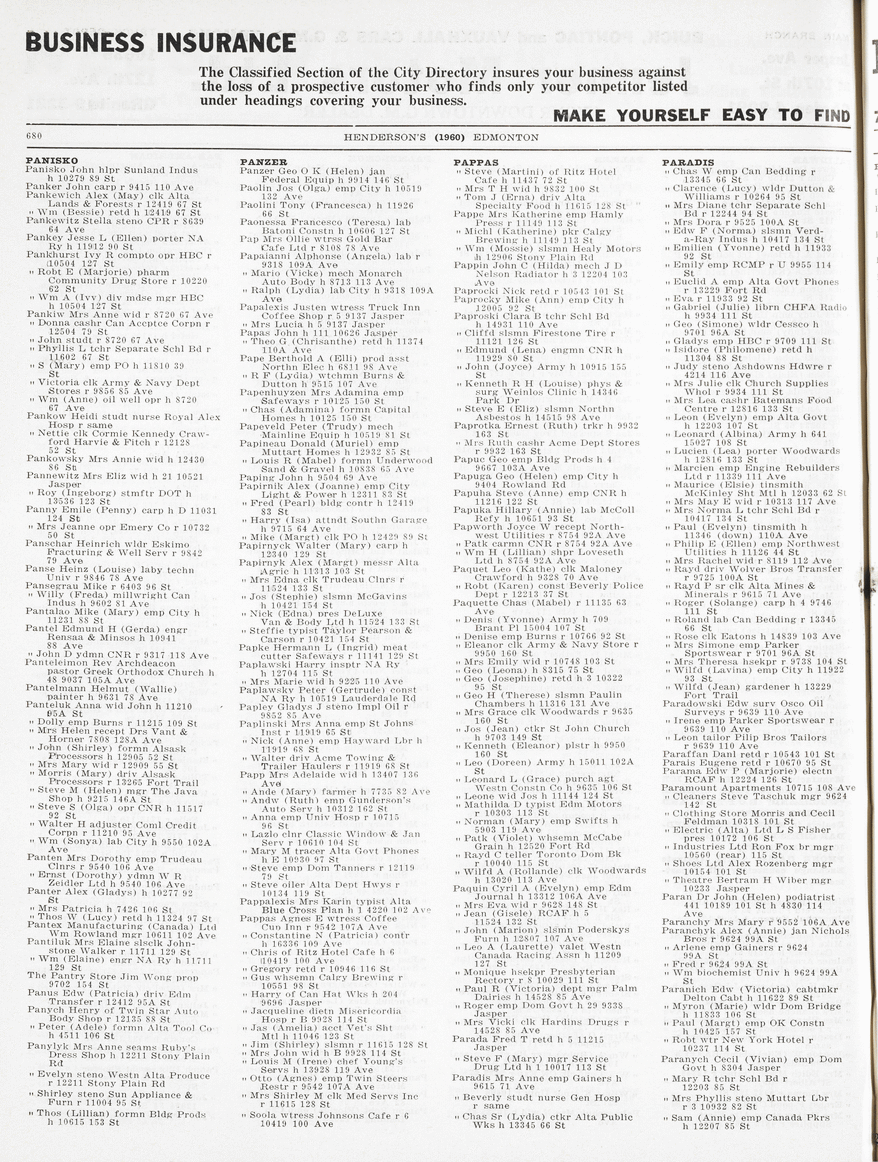 BUSINESS INSURANCE
The Classified Section of the City Directory insures your business against
the loss of a prospective customer who finds only your competitor listed
under headings covering your business.
MAKE YOURSELF EASY TO FIND
680
HENDERSON'S (1960) EDMONTON
PANISKO
Panisko John hlpr Sunland Indus
h 10279 89 St
Panker John carp r 9415 110 Ave
Pankewich Alex (May) clk Alta
Lands & Forests r 12419 67 St
" Wm (Bessie) retd h 12419 67 St
Pankewitz Stella steno CPR r 8639
64 Ave
Pankey Jesse L (Ellen) porter NA
Ry h 11912 90 St
Pankhurst Ivy R compto opr HBC r
10504 127 St
" Robt E (Marjorie) pharm
Community Drug Store r 10220
62 St
" Wm A (Ivy) div mdse mgr HBC
h 10504 127 St
Pankiw Mrs Anne wid r 8720 67 Ave
" Donna cashr Can Accptce Corpn r
12504 79 St
" John studt r 8720 67 Ave
" Phyllis L tchr Separate Schl Bd r
11602 67 St
" S (Mary) emp PO h 11810 39
St
" Victoria clk Army & Navy Dept
Stores r 9856 85 Ave
" Wm (Anne) oil well opr h 8720
67 Ave
Pankow Heidi studt nurse Royal Alex
Hosp r same
" Nettie clk Cormie Kennedy Craw-
ford Harvie & Fitch r 12128
52 St
Pankowsky Mrs Annie wid h 12430
86 St
Pannewitz Mrs Eliz wid h 21 10521
Jasper
" Roy (Ingeborg) stmftr DOT h
13536 123 St
Panny Emile (Penny) carp h D 11031
124 St
" Mrs Jeanne opr Emery Co r 10732
50 St
Panschar Heinrich wldr Eskimo
Fracturing & Well Serv r 9842
79 Ave
Panse Heinz (Louise) laby techn
Univ r 9846 78 Ave
Pansegrau Mike r 6403 96 St
" Willy (Freda) millwright Can
Indus h 9602 81 Ave
Pantalao Mike (Mary) emp City h
11231 88 St
Pantel Edmund H (Gerda) engr
Rensaa & Minsos h 10941
88 Ave
" John D ydmn CNR r 9317 118 Ave
Panteleimon Rev Archdeacon
pastor Greek Orthodox Church h
48 9037 105A Ave
Pantelmann Helmut (Wallie)
painter h 9631 78 Ave
Panteluk Anna wid John h 11210
95A St
" Dolly emp Burns r 11215 109 St
" Mrs Helen recept Drs Vant &
Horner 7808 128A Ave
" John (Shirley) formn Alsask
Processors h 12905 52 St
" Mrs Mary wid r 12909 55 St
" Morris (Mary) driv Alsask
Processors r 13265 Fort Trail
" Steve M (Helen) mgr The Java
Shop h 9215 146A St
" Steve S (Olga) opr CNR h 11517
92 St
" Walter H adjuster Coml Credit
Corpn r 11210 95 Ave
" Wm (Sonya) lab City h 9550 102A
Ave
Panten Mrs Dorothy emp Trudeau
Clnrs r 9540 106 Ave
" Ernst (Dorothy) ydmn W R
Zeidler Ltd h 9540 106 Ave
Panter Alex (Gladys) h 10277 92
St
" Mrs Patricia h 7426 106 St
" Thos W (Lucy) retd h 11324 97 St
Pantex Manufacturing (Canada) Ltd
Wm Rowland mgr 10611 102 Ave
Pantiluk Mrs Elaine slsclk John-
stone Walker r 11711 129 St
" Wm (Elaine) engr NA Ry h 11711
129 St
The Pantry Store Jim Wong prop
9702 154 St
Panus Edw (Patricia) driv Edm
Transfer r 12412 95A St
Panych Henry of Twin Star Auto
Body Shop r 12135 88 St
" Peter (Adele) formn Alta Tool Co
h 4511 106 St
Panylyk Mrs Anne seams Ruby's
Dress Shop h 12211 Stony Plain
Rd
" Evelyn steno Westn Alta Produce
r 12211 Stony Plain Rd
" Shirley steno Sun Appliance &
Furn r 11004 95 St
" Thos (Lillian) formn Bldg Prods
h 10615 153 St
PANZER
Panzer Geo O K (Helen) jan
Federal Equip h 9914 146 St
Paolin Jos (Olga) emp City h 10519
132 Ave
Paolini Tony (Francesca) h 11926
66 St
Paonessa Francesco (Teresa) lab
Batoni Constn h 10606 127 St
Pap Mrs Ollie wtrss Gold Bar
Cafe Ltd r 8108 78 Ave
Papaianni Alphonse (Angela) lab r
9318 109A Ave
" Mario (Vicke) mech Monarch
Auto Body h 8713 113 Ave
" Ralph (Lydia) lab City h 9318 109A
Ave
Papalexis Justen wtrss Truck Inn
Coffee Shop r 5 9137 Jasper
" Mrs Lucia h 5 9137 Jasper
Papas John h 111 10626 Jasper
" Theo G (Chrisanthe) retd h 11374
110A Ave
Pape Berthold A (Elli) prod asst
North Elec h 6811 98 Ave
" R F (Lydia) wtchmn Burns &
Dutton h 9515 107 Ave
Papenhuyzen Mrs Adamina emp
Safeways r 10125 150 St
" Chas (Adamina) formn Capital
Homes h 10125 150 St
Papeveld Peter (Trudy) mech
Mainline Equip h 10519 81 St
Papineau Donald (Muriel) emp
Muttart Homes h 12932 85 St
" Louis R (Mabel) formn Underwood
Sand & Gravel h 10838 65 Ave
Paping John h 9504 69 Ave
Papirnik Alex (Joanne) emp City
Light & Power h 12311 83 St
" Fred (Pearl) bldg contr h 12419
83 St
" Harry (Isa) attndt Southn Garage
h 9715 64 Ave
" Mike (Margt) clk PO h 12429 89 St
Papirnyck Walter (Mary) carp h
12340 129 St
Papirnyk Alex (Margt) messr Alta
Agric h 11313 103 St
" Mrs Edna clk Trudeau Clnrs r
11524 133 St
" Jos (Stephie) slsmn McGavins
h 10421 154 St
" Nick (Edna) pres DeLuxe
Van & Body Ltd h 11524 133 St
" Steffie typist Taylor Pearson &
Carson r 10421 154 St
Papke Hermann L (Ingrid) meat
cutter Safeways r 11141 129 St
Paplawski Harry insptr NA Ry
h 12704 115 St
" Mrs Marie wid h 9225 110 Ave
Paplawsky Peter (Gertrude) const
NA Ry h 10519 Lauderdale Rd
Papley Gladys J steno Impl Oil r
9852 85 Ave
Paplinski Mrs Anna emp St Johns
Inst r 11919 65 St
" Nick (Anne) emp Hayward Lbr h
11919 68 St
" Walter driv Acme Towing &
Trailer Haulers r 11919 68 St
Papp Mrs Adelaide wid h 13407 136
Ave
" Ande (Mary) farmer h 7735 82 Ave
" Andw (Ruth) emp Gunderson's
Auto Serv h 10312 162 St
" Anna emp Univ Hosp r 10715
96 St
" Lazlo clnr Classic Window & Jan
Serv r 10610 104 St
" Mary M tracer Alta Govt Phones
h E 10930 97 St
" Steve emp Dom Tanners r 12119
79 St
" Steve oiler Alta Dept Hwys r
10134 119 St
Pappalexis Mrs Karin typist Alta
Blue Cross Plan h 1 4220 102 Ave
Pappas Agnes E wtress Coffee
Cup Inn r 9542 107A Ave
" Constantine N (Patricia) contr
h 16336 109 Ave
" Chris of Ritz Hotel Cafe h 6
10419 100 Ave
" Gregory retd r 10946 116 St
" Gus whsemn Calgy Brewing r
10551 98 St
" Harry of Can Hat Wks h 204
9696 Jasper
" Jacqueline dietn Misericordia
Hosp r B 9928 114 St
" Jas (Amelia) acct Vet's Sht
Mtl h 11046 123 St
" Jim (Shirley) slsmn r 11615 128 St
" Mrs John wid h B 9928 114 St
" Louis M (Irene) chef Young's
Servs h 13928 119 Ave
" Otto (Agnes) emp Twin Steers
Restr r 9542 107A Ave
" Mrs Shirley M clk Med Servs Inc
r 11615 128 St
" Soola wtress Johnsons Cafe r 6
10419 100 Ave
PAPPAS
" Steve (Martini) of Ritz Hotel
Cafe h 11437 72 St
" Mrs T H wid h 9832 100 St
" Tom J (Erna) driv Alta
Specialty Food h 11615 128 St
Pappe Mrs Katherine emp Hamly
Press r 11149 113 St
" Michl (Katherine) pkr Calgy
Brewing h 11149 113 St
" Wm (Mossie) slsmn Healy Motors
h 12906 Stony Plain Rd
Pappin John C (Hilda) mech J D
Nelson Radiator h 3 12204 103
Ave
Paprocki Nick retd r 10543 101 St
Paprocky Mike (Ann) emp City h
12005 92 St
Paproski Clara B tchr Schl Bd
h 14931 110 Ave
" Cliffd slsmn Firestone Tire r
11121 126 St
" Edmund (Lena) engmn CNR h
11929 80 St
" John (Joyce) Army h 10915 155
St
" Kenneth R H (Louise) phys &
surg Weinlos Clinic h 14346
Park Dr
" Steve E (Eliz) slsmn Northn
Asbestos h 14515 98 Ave
Paprotka Ernest (Ruth) trkr h 9932
163 St
" Mrs Ruth cashr Acme Dept Stores
r 9932 163 St
Papuc Geo emp Bldg Prods h 4
9667 103A Ave
Papuga Geo (Helen) emp City h
9404 Rowland Rd
Papuha Steve (Anne) emp CNR h
11216 122 St
Papuka Hillary (Annie) lab McColl
Refy h 10651 93 St
Papworth Joyce W recept North-
west Utilities r 8754 92A Ave
" Patk carmn CNR r 8754 92A Ave
" Wm H (Lillian) shpr Loveseth
Ltd h 8754 92A Ave
Paquet Leo (Kathe) clk Maloney
Crawford h 9328 70 Ave
" Robt (Karen) const Beverly Police
Dept r 12213 37 St
Paquette Chas (Mabel) r 11135 63
Ave
" Denis (Yvonne) Army h 709
Brant Pl 15004 107 St
" Denise emp Burns r 10766 92 St
" Eleanor clk Army & Navy Store r
9950 160 St
" Mrs Emily wid r 10748 103 St
" Geo (Leona) h 8315 75 St
" Geo (Josephine) retd h 3 10322
95 St
" Geo H (Therese) slsmn Paulin
Chambers h 11316 131 Ave
" Mrs Grace clk Woodwards r 9635
160 St
" Jos (Jean) ctkr St John Church
h 9703 149 St
" Kenneth (Eleanor) plstr h 9950
160 St
" Leo (Doreen) Army h 15011 102A
St
" Leonard L (Grace) purch agt
Westn Constn Co h 9635 106 St
" Leone wid Jos h 11144 124 St
" Mathilda D typist Edm Motors
r 10303 113 St
" Norman (Mary) emp Swifts h
5903 119 Ave
" Patk (Violet) whsemn McCabe
Grain h 12520 Fort Rd
" Rayd C teller Toronto Dom Bk
r 10040 115 St
" Wilfd A (Rollande) clk Woodwards
h 13020 113 Ave
Paquin Cyril A (Evelyn) emp Edm
Journal h 13312 106A Ave
" Mrs Eva wid r 9628 148 St
" Jean (Gisele) RCAF h 5
11524 132 St
" John (Marion) slsmn Poderskys
Furn h 12807 107 Ave
" Leo A (Laurette) valet Westn
Canada Racing Assn h 11209
127 St
" Monique hsekpr Presbyterian
Rectory r 8 10029 111 St
" Paul R (Victoria) dept mgr Palm
Dairies h 14528 85 Ave
" Roger emp Dom Govt h 29 9338
Jasper
" Mrs Vicki clk Hardins Drugs r
14528 85 Ave
Parada Fred T retd h 5 11215
Jasper
" Steve F (Mary) mgr Service
Drug Ltd h 1 10017 113 St
Paradis Mrs Anne emp Gainers h
9615 71 Ave
" Beverly studt nurse Gen Hosp
r same
" Chas Sr (Lydia) ctkr Alta Public
Wks h 13345 66 St
PARADIS
" Chas W emp Can Bedding r
13345 66 St
" Clarence (Lucy) wldr Dutton &
Williams r 10264 95 St
" Mrs Diane tchr Separate Schl
Bd r 12244 94 St
" Mrs Dora r 9525 100A St
" Edw F (Norma) slsmn Verd-
a-Ray Indus h 10417 134 St
" Emilien (Yvonne) retd h 11933
92 St
" Emily emp RCMP r U 9955 114
St
" Euclid A emp Alta Govt Phones
r 13229 Fort Rd
" Eva r 11933 92 St
" Gabriel (Julie) librn CHFA Radio
h 9934 111 St
" Geo (Simone) wldr Cessco h
9701 96A St
" Gladys emp HBC r 9709 111 St
" Isidore (Philomene) retd h
11304 88 St
" Judy steno Ashdowns Hdwre r
4214 116 Ave
" Mrs Julie clk Church Supplies
Whol r 9934 111 St
" Mrs Lea cashr Batemans Food
Centre r 12816 133 St
" Leon (Evelyn) emp Alta Govt
h 12203 107 St
" Leonard (Albina) Army h 641
15027 108 St
" Lucien (Lea) porter Woodwards
h 12816 133 St
" Marcien emp Engine Rebuilders
Ltd r 11339 111 Ave
" Maurice (Elsie) tinsmith
McKinley Sht Mtl h 12033 62 St
" Mrs May E wid r 10313 117 Ave
" Mrs Norma L tchr Schl Bd r
10417 134 St
" Paul (Evelyn) tinsmith h
11346 (down) 110A Ave
" Philip E (Ellen) emp Northwest
Utilities h 11126 44 St
" Mrs Rachel wid r 8119 112 Ave
" Rayd driv Wolver Bros Transfer
r 9725 100A St
" Rayd P sr clk Alta Mines &
Minerals r 9615 71 Ave
" Roger (Solange) carp h 4 9746
111 St
" Roland lab Can Bedding r 13345
66 St
" Rose clk Eatons h 14839 103 Ave
" Mrs Simone emp Parker
Sportswear r 9701 96A St
" Mrs Theresa hsekpr r 9738 104 St
" Wilfd (Lavina) emp City h 11922
93 St
" Wilfd (Jean) gardener h 13229
Fort Trail
Paradowski Edw surv Osco Oil
Surveys r 9639 110 Ave
" Irene emp Parker Sportswear r
9639 110 Ave
" Leon tailor Pilip Bros Tailors
r 9639 110 Ave
Paraffan Danl retd r 10543 101 St
Parais Eugene retd r 10670 95 St
Parana Edw P (Marjorie) electn
RCAF h 12224 126 St
Paramount Apartments 10715 108 Ave
" Cleaners Steve Taschuk mgr 9624
142 St
" Clothing Store Morris and Cecil
Feldman 10318 101 St
" Electric (Alta) Ltd L S Fisher
pres 10172 106 St
" Industries Ltd Ron Fox br mgr
10560 (rear) 115 St
" Shoes Ltd Alex Rozenberg mgr
10154 101 St
" Theatre Bertram H Wiber mgr
10233 Jasper
Paran Dr John (Helen) podiatrist
441 10189 101 St h 4830 114
Ave
Paranchy Mrs Mary r 9552 106A Ave
Paranchyk Alex (Annie) jan Nichols
Bros r 9624 99A St
" Arlene emp Gainers r 9624
99A St
" Fred r 9624 99A St
" Wm biochemist Univ h 9624 99A
St
Paranich Edw (Victoria) cabtmkr
Delton Cabt h 11622 89 St
" Myron (Marie) wldr Dom Bridge
h 11833 106 St
" Paul (Margt) emp OK Constn
h 10425 157 St
" Robt wtr New York Hotel r
10237 114 St
Paranych Cecil (Vivian) emp Dom
Govt h 8304 Jasper
" Mary R tchr Schl Bd r
12203 85 St
" Mrs Phyllis steno Muttart Lbr
r 3 10932 82 St
" Sam (Annie) emp Canada Pkrs
h 12207 85 St